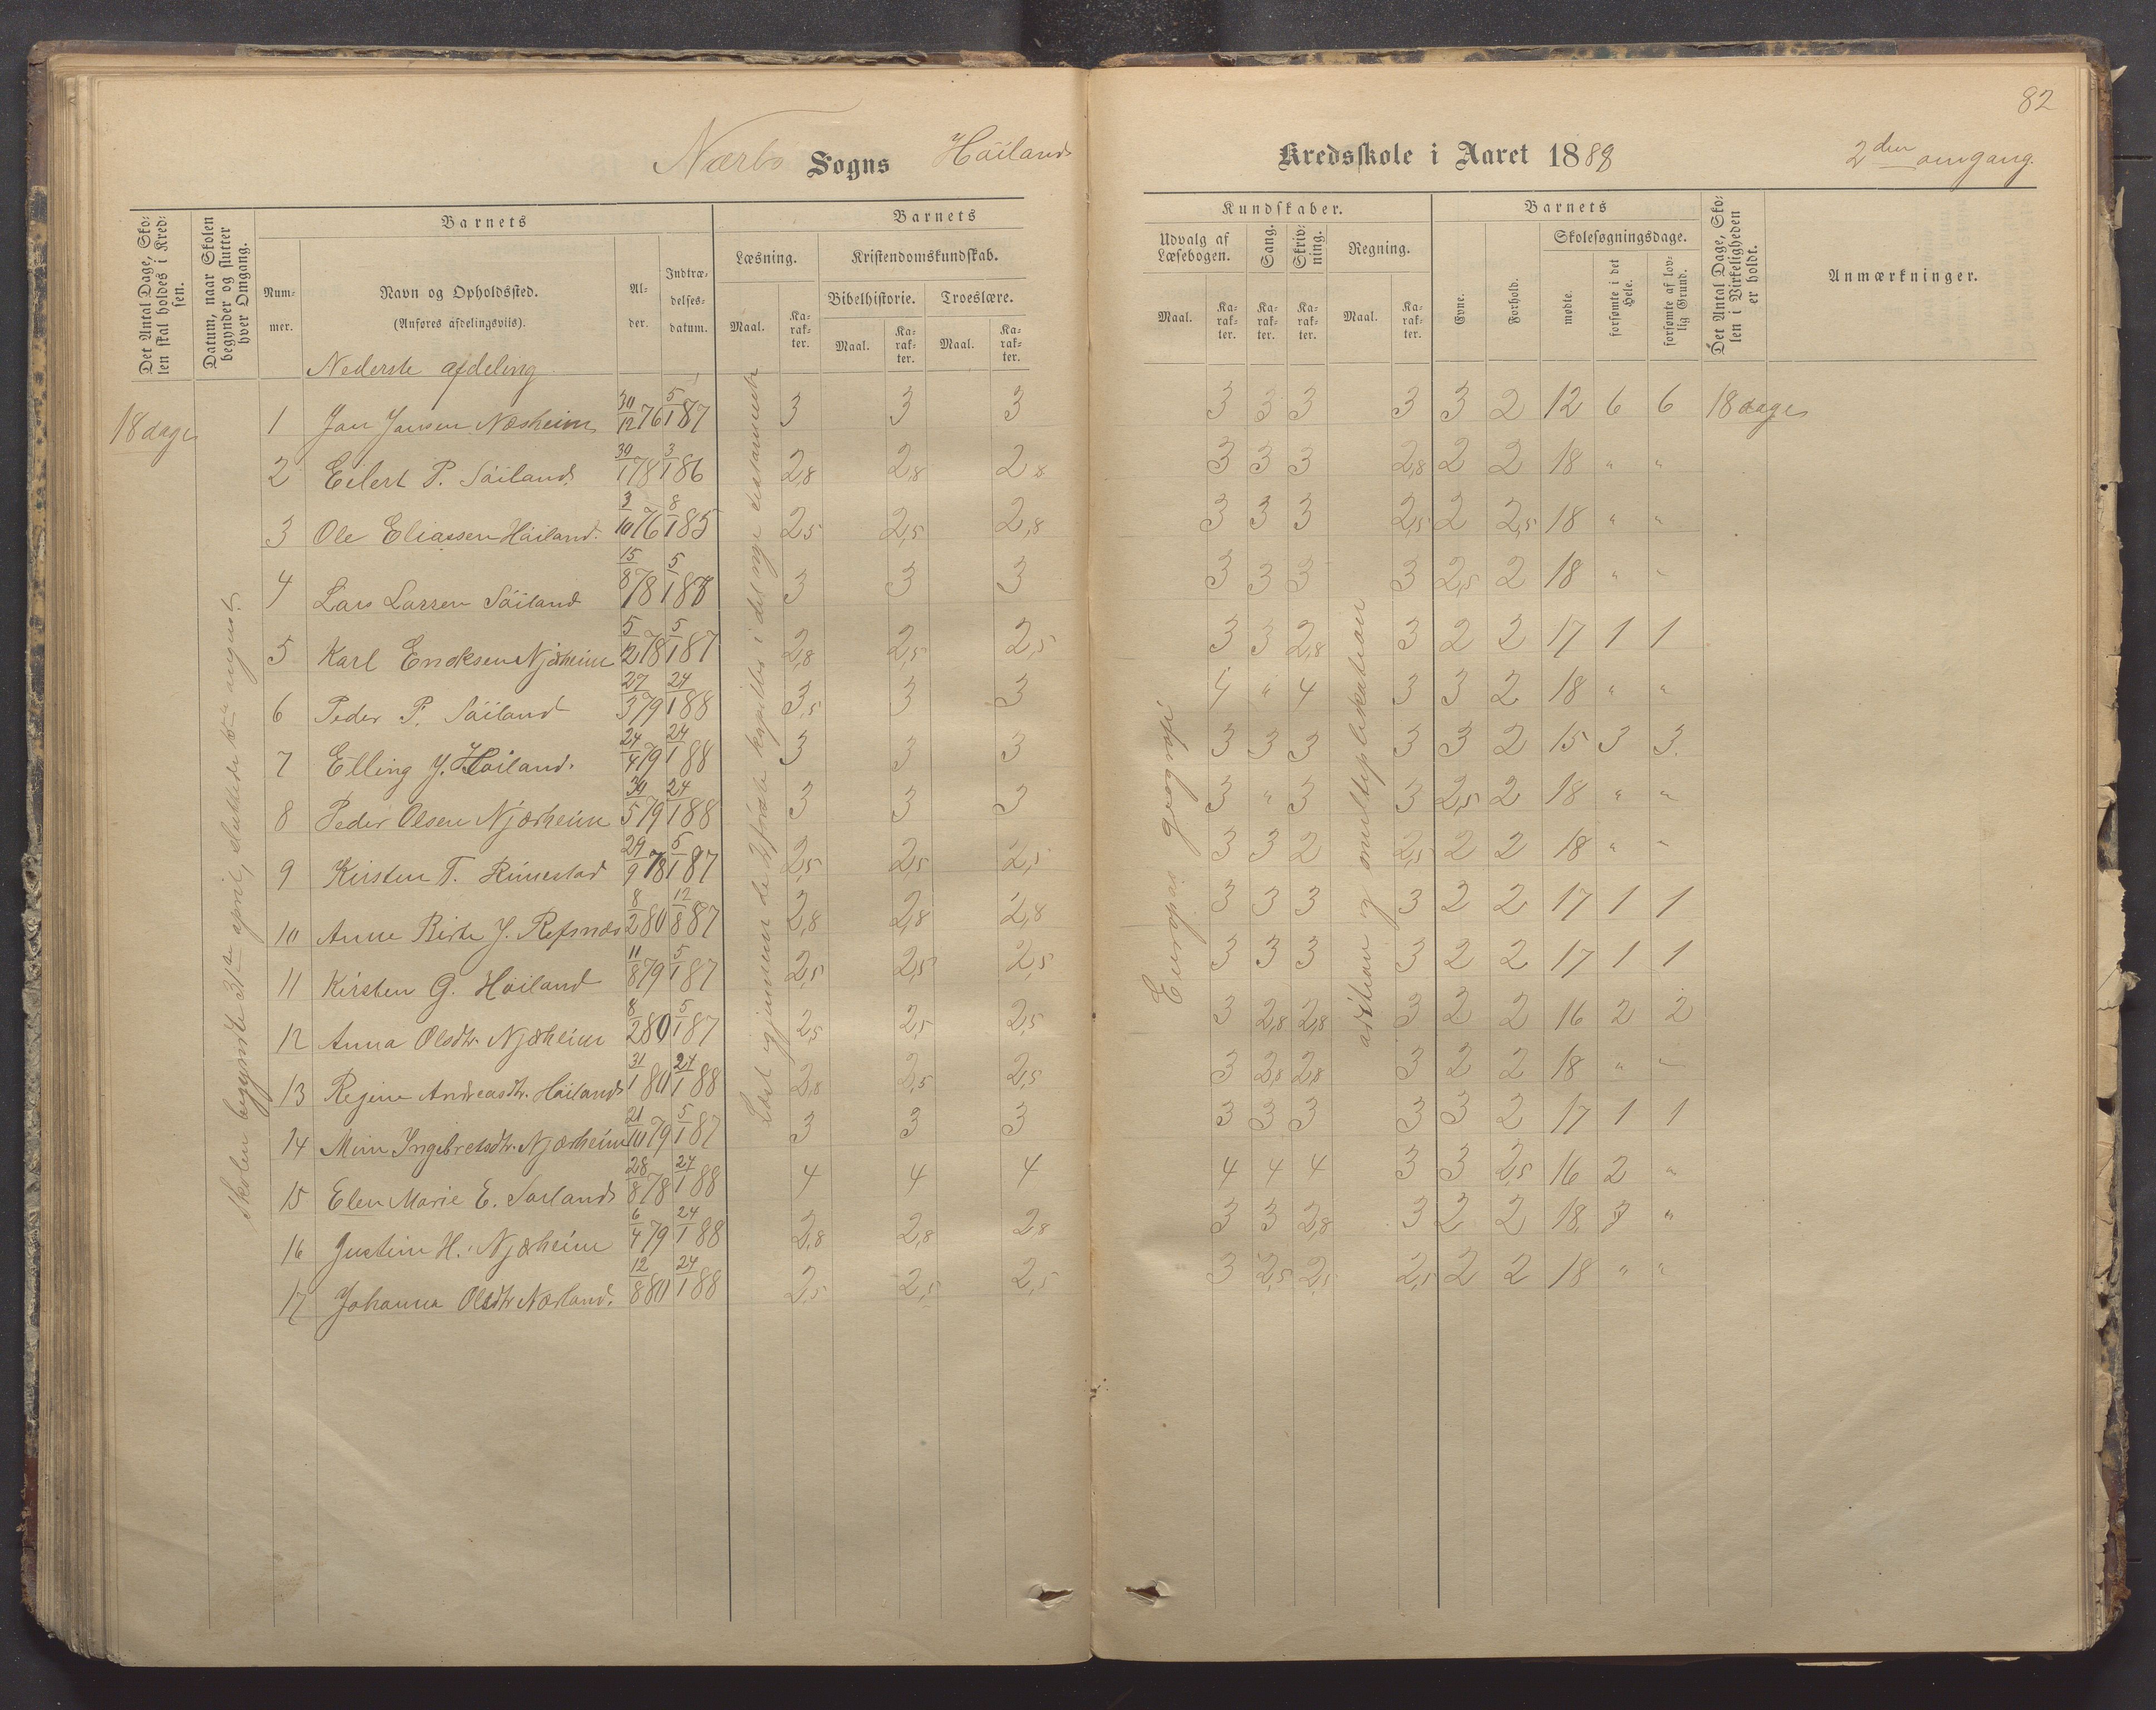 82
Nærbø Sogns Höilands Kredsskole i Aaret 1888 2den omgang.
Det Antal Dage, Skolen skal holdes i Kredsen.
Datum, naar Skolen begynder og slutter hver Omgang.
Barnets
Nummer.
Navn og Opholdssted.
(Anføres afdelingsviis).
Alder.
Indtrædelsesdatum.
Barnets Kundskaber.
Læsning.
Maal. Karakter.
Kristendomskundskab.
Bibelhistorie. Troeslære.
Maal. Karakter. Maal. Karakter.
Udvalg af Læsebogen.
Maal. Karakter.
Sang. Karakter.
Skrivning. Karakter.
Regning.
Maal. Karakter.
Barnets
Evne. Forhold.
Skolesøgningsdage.
mødte. forsømte i det Hele. forsømte af lovlig Grund.
Det Antal Dage, Skolen i Virkeligheden er holdt.
Anmærkninger.
Nederste afdeling
18 dage 1 Jan Jansen Næsheim 30/12 76 5/1 87 3 3 3 3 3 3 3 3 2 12 6 6 18 dage
2 Eilert P. Söiland 30/1 78 3/1 86 2,8 2,8 2,8 3 3 3 2,8 2 2 18 " "
3 Ole Eliassen Höiland. 3/10 76 8/1 85 2,5 2,5 2,8 3 3 3 2,5 2 2,5 18 " "
4 Lars Larsen Söiland 15/8 78 5/1 87 3 3 3 3 3 3 3 2,5 2 18 " "
5 Karl Enoksen Njærheim 5/12 78 5/1 87 2,8 2,5 2,5 3 3 2,8 3 2 2 17 1 1
6 Peder P. Söiland 27/3 79 24/1 88 3,5 3 3 4 " 4 3 3 2 18 " "
7 Elling J. Höiland. 24/4 79 24/1 88 3 3 3 3 3 3 3 3 2 15 3 3
8 Peder Olsen Njærheim 30/5 79 24/1 88 3 3 3 3 " 3 3 2,5 2 18 " "
9 Kirsten T. Rimestad 29/9 78 5/1 87 2,5 2,5 2,5 3 3 2 2,5 2 2 18 " "
10 Anne Birte J. Refsnæs 8/2 80 12/8 87 2,8 2,8 2,8 3 3 3 3 2 2 17 1 1
11 Kirsten G. Höiland 11/8 79 5/1 87 2,5 2,5 2,5 3 3 3 3 2 2 17 1 1
12 Anna Olsdtr. Njærheim 8/2 80 5/1 87 2,5 2,5 2,5 3 2,8 2,8 3 2 2 16 2 2
13 Regine Andreasdtr. Höiland 31/1 80 24/1 88 2,8 2,5 2,5 3 2,8 2,8 3 2 2 18 " "
14 Mine Ingebretsdtr. Njærheim 21/10 79 5/1 87 3 3 3 3 3 3 3 3 2 17 1 1
15 Elen Marie E. Söiland 28/8 78 24/1 88 4 4 4 4 4 4 3 3 2,5 16 2 "
16 Justine H. Njærheim 6/4 79 24/1 88 2,8 2,8 2,8 3 3 2,8 3 2 2 18 "
17 Johanna Olsdtr Nærland. 12/8 80 24/1 88 2,5 2,5 2,5 3 2,5 2,5 2,5 2 2 18 " "
Skolen begyndte 31te april, sluttede te august.
Læst igjennem de förste kapitler i det nye testamente
Europas geografi
adition og multiplikation